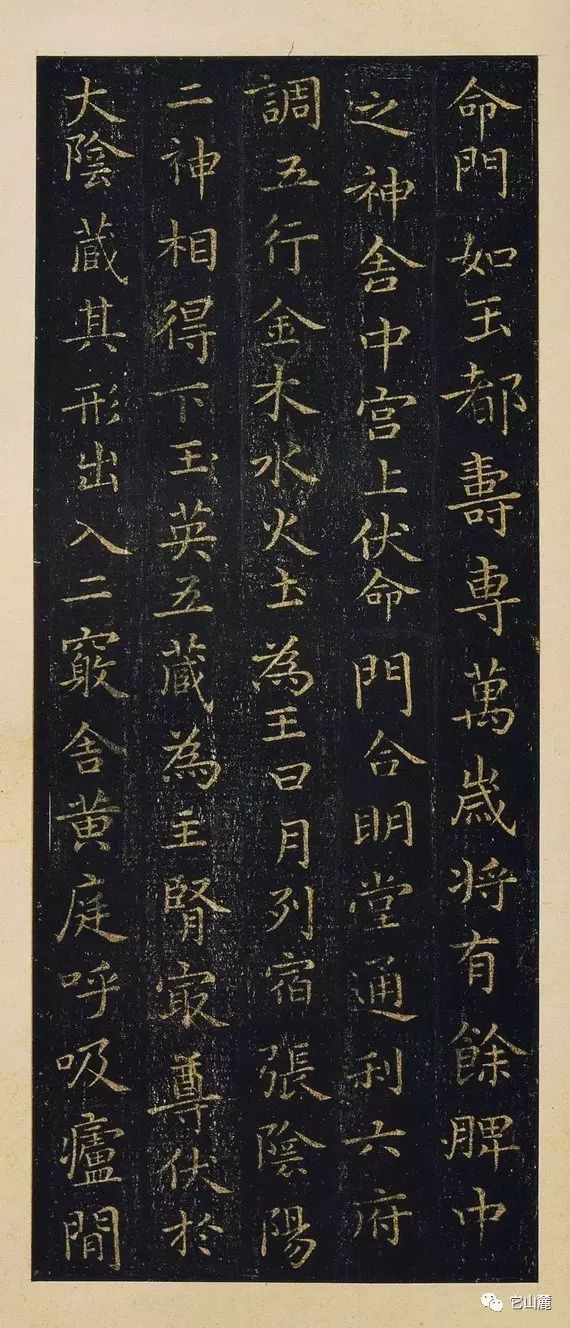 命門如王都壽專萬歲将有餘脾中
之神舍中宫上伏命門合明堂通利六府
調五行金木水火土為王日月列宿張陰陽
二神相得下玉英五藏為主腎㝡尊伏於
大陰蔵其形出入二竅舍黄庭呼吸廬間
它山麓